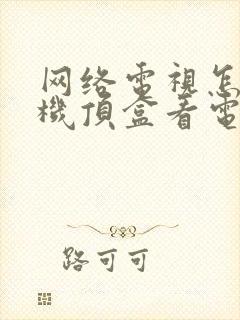 网络電視怎
機頂盒看電
路可可